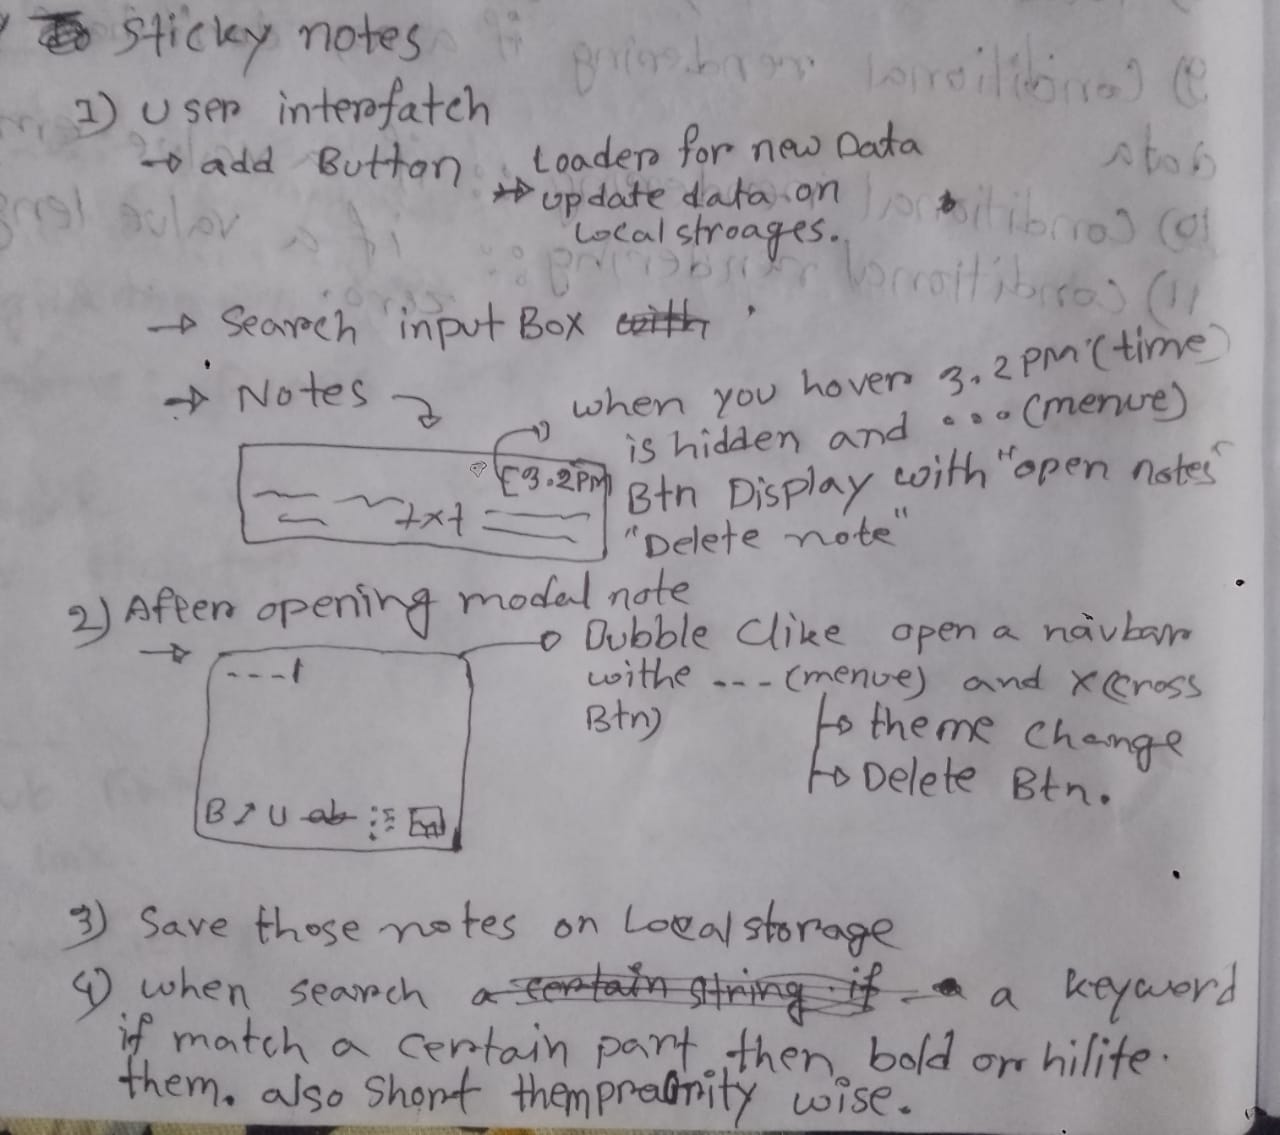 Sticky notes
1) User interfatch
→ add Button
Loader for new Data
→ update data on
Local stroages.
→ Search input Box with
→ Notes
when you hover 3.2 PM (time)
is hidden and ... (menue)
Btn Display with "open notes"
"Delete note"
3.2PM
txt
2) After opening modal note
→ Dubble Clike open a navbar
withe --- (menue) and X (Cross
Btn)
→ theme change
→ Delete Btn.
B I U ab
3) Save those notes on Local storage
4) when search a certain string if a a keyword
if match a certain part then bold or hilite.
them. also Short them praority wise.